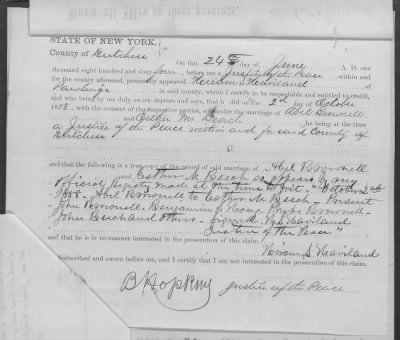 Know all Men by these presents,
STATE OF NEW YORK,
County of Dutchess
On this 24th day of June A. D. one
thousand eight hundred and sixty four, before me a Justice of the Peace within
for the county aforesaid, personally appeared Hiram S. Haviland of
Pawlings in said county, whom I certify to be respectable and entitled to credit,
and who being by me duly sworn deposes and says, that he did on the 2nd day of October
1858, with the consent of the respective parties, solemnize the marriage of Abil Brownell
and Esther M. Beach, he being at the time
a Justice of the Peace within and for said County of
Dutchess
and that the following is a true copy of the record of said marriage of Abil Brownell
Esther M Beech as appears by my
official Registry made at the time to wit. "October 2nd
1858 - Abil Brownell to Esther M Beech - Present
John Brownell, Benjamin Phebe Brownell -
John Beech and others - signed H. S. Haviland
Justice of the Peace"
and that he is in no manner interested in the prosecution of this claim.
Hiram S Haviland
Subscribed and sworn before me, and I certify that I am not interested in the prosecution of this claim.
B Hopkins Justice of the Peace